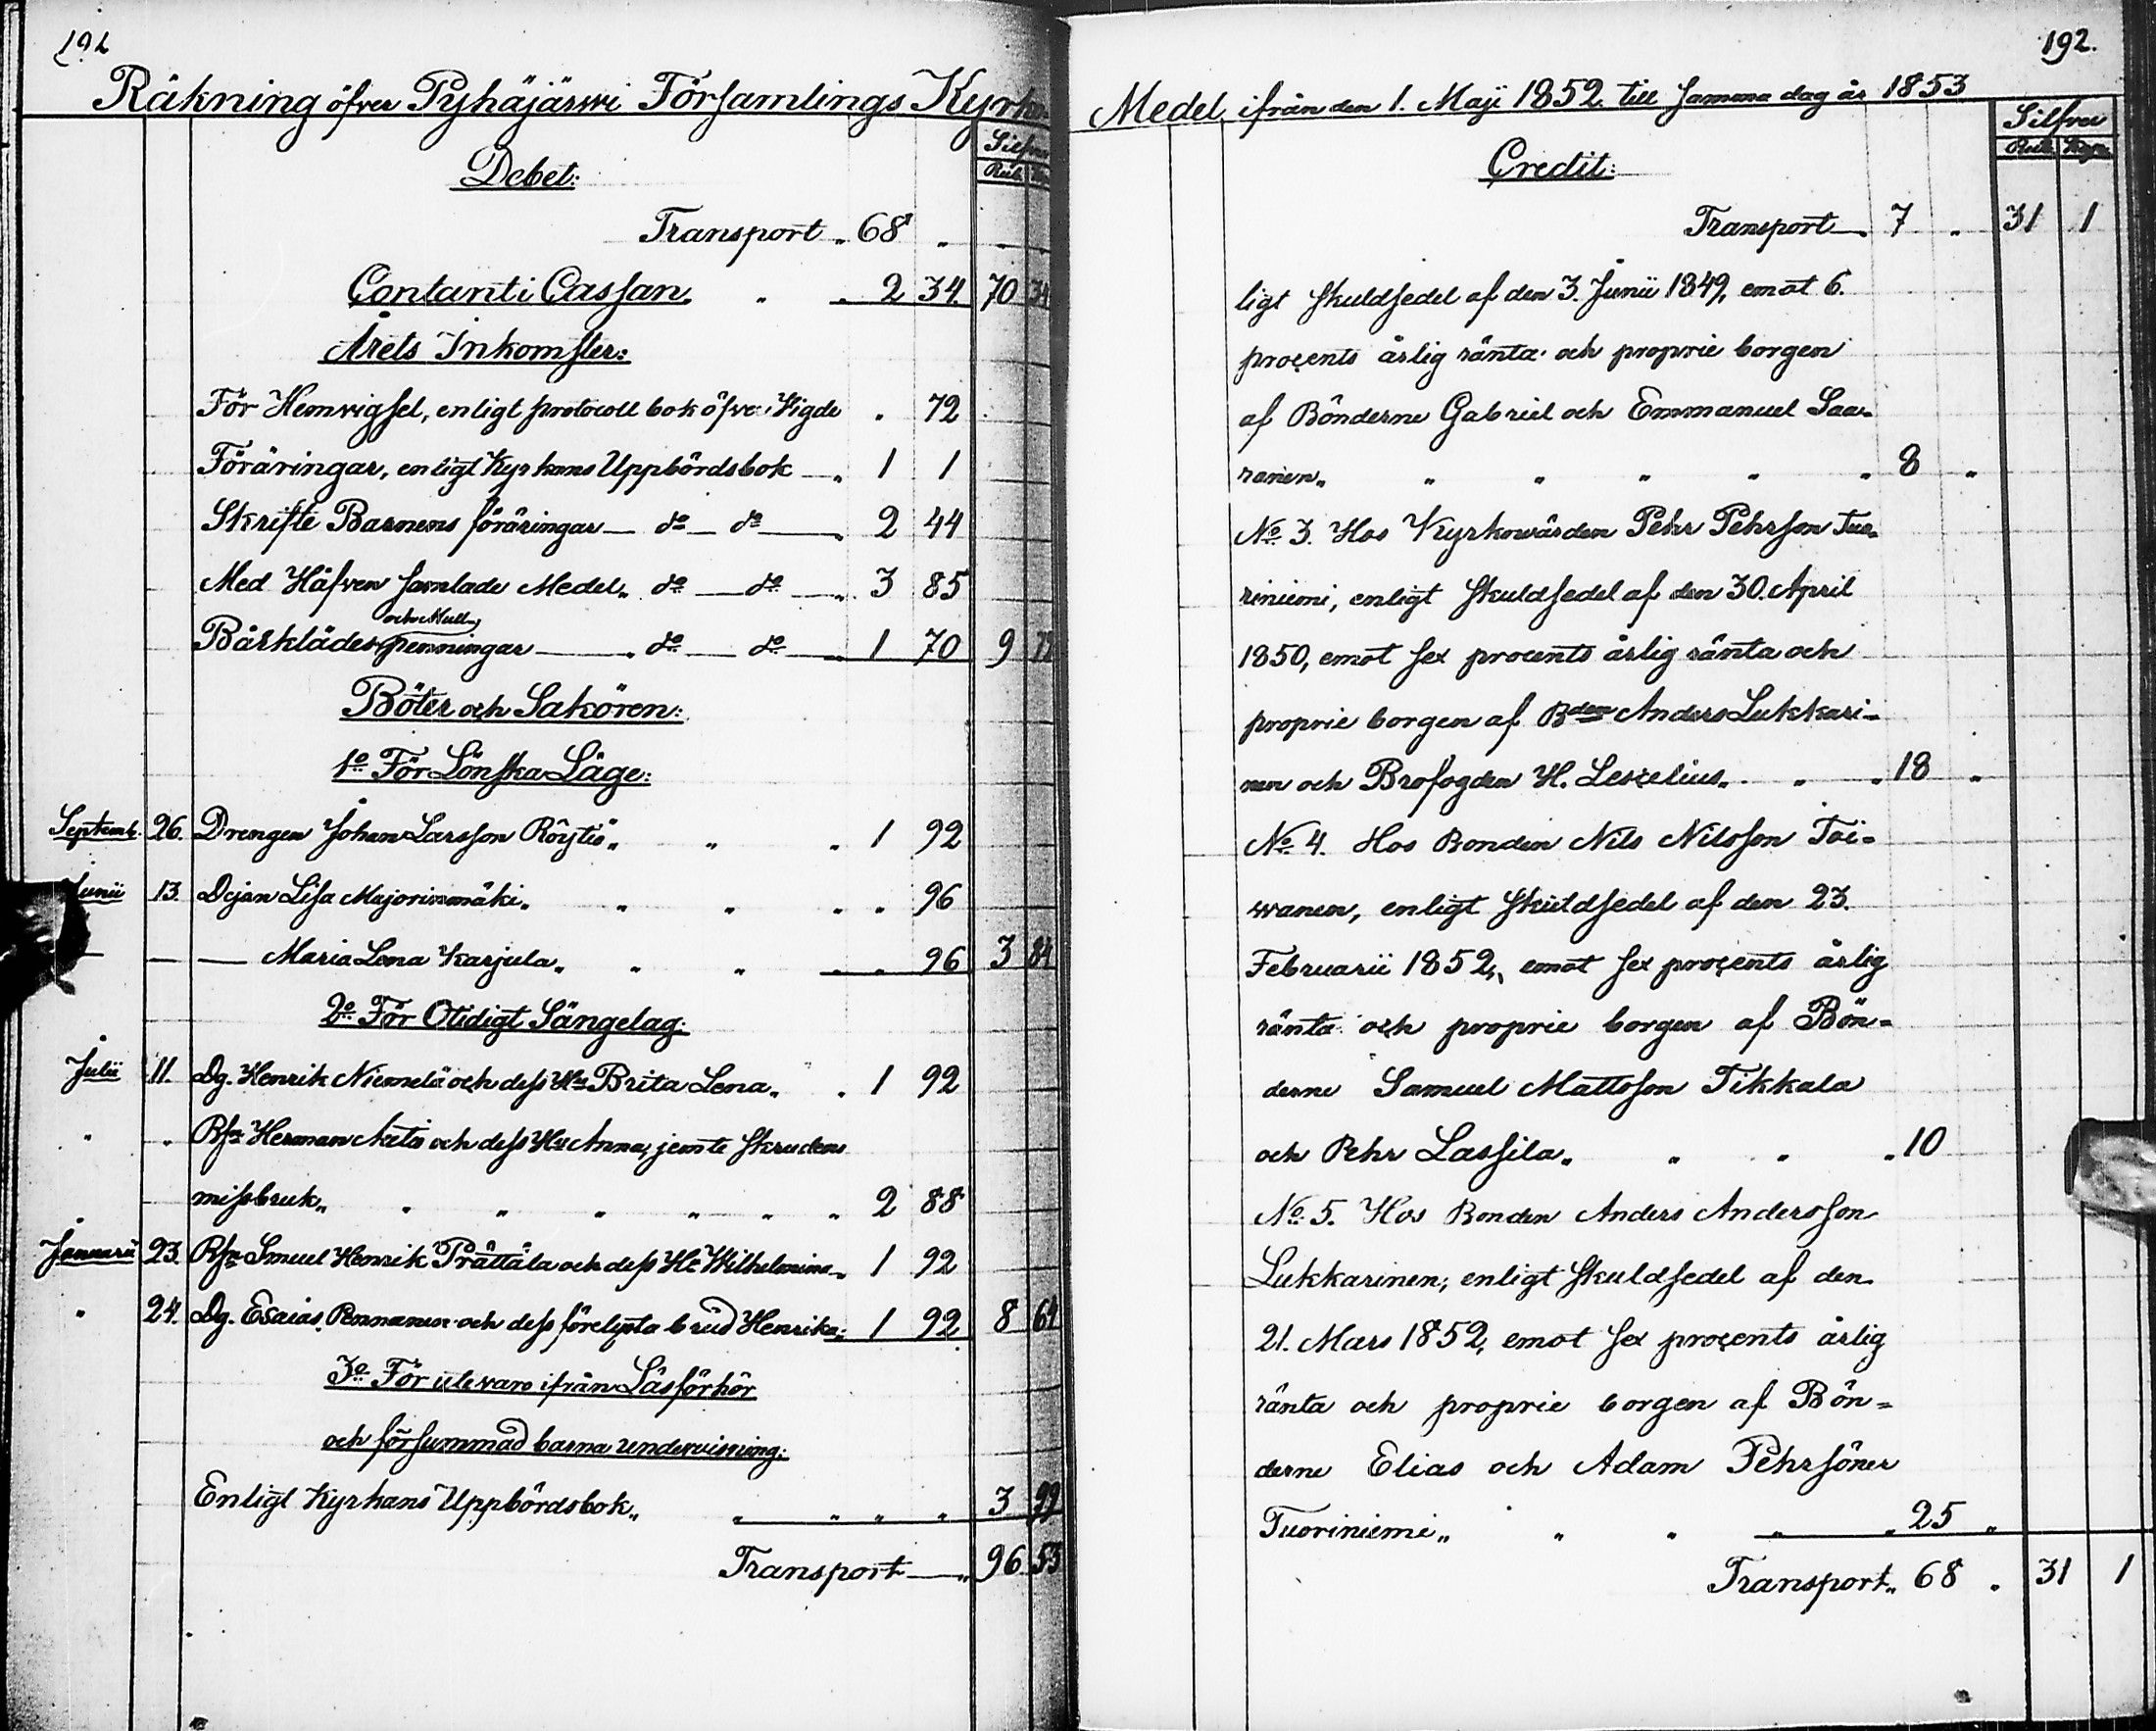 192
Räkning öfver Pyhäjärwi Församlings Kyrko
Silfver
Rub.
Debet:
Transport „ 68 „ „ „
Contant i Cassan „ „ 2 34. 70 34
Årets Inkomster:
För Hemvigsel, enligt protocoll bok öfver Vigde „ 72
Föräringar, enligt Kyrkans Uppbördsbok „ 1 1
Skrifte Barnens föräringar — do — do — „ 2 44
Med Håfven samlade Medel „ do — do — „ 3 85
och Mull
Bårklädes penningar — „ do — do — „ 1 70 9 72
Böter och Sakören:
1o För Lönska Läge:
Septemb. 26. Drengen Johan Larsson Röytiö „ „ „ 1 92
Junii 13. Dejan Lisa Majorinmäki „ „ „ „ „ 96
— — — Maria Lena Karjula „ „ „ „ „ 96 3 84
2o För Otidigt Sängelag:
Julii 11. Dg. Henrik Niemelä och dess Hu Brita Lena „ „ 1 92
„ „ Herman och dess Hu Anna, jemte skrudens
missbruk „ „ „ „ „ „ „ 2 88
Januarii 23. Smuel Henrik Prättälä och dess Hu Wilhelmina „ 1 92
„ 24. Dg. Esaias Pennanen och dess förelysta brud Henrika „ 1 92 8 64
3o För utevaro ifrån Läsförhör
och försummad barna undervisning:
Enligt Kyrkans Uppbördsbok „ „ „ „ „ 3 99
Transport — „ 96 53
192.
Medel ifrån den 1. Maji 1852 till samma dag år 1853
Silfver
Rub. Kop.
Credit:
Transport — „ 7 „ 31 1
ligt skuldsedel af den 3. Junii 1849, emot 6.
procents årlig ränta och proprie borgen
af Bönderne Gabriel och Emmanuel Saa-
ranen „ „ „ „ „ „ 8 „
No 3. Hos Kyrkowärden Pehr Pehrson Tuo-
riniemi, enligt skuldsedel af den 30. April
1850, emot sex procents årlig ränta och
proprie borgen af Bden Anders Lukkari-
nen och Brofogden H. Lescelius „ „ „ 18 „
No 4. Hos Bonden Nils Nilsson Toi-
wanen, enligt skuldsedel af den 23.
Februarii 1852, emot sex procents årlig
ränta och proprie borgen af Bön-
derne Samuel Mattsson Tikkala
och Pehr Lassila „ „ „ „ 10
No 5. Hos Bonden Anders Andersson
Lukkarinen, enligt skuldsedel af den
21. Mars 1852, emot sex procents årlig
ränta och proprie borgen af Bön-
derne Elias och Adam Pehrsöner
Tuoriniemi „ „ „ „ „ 25 „
Transport „ 68 „ 31 1